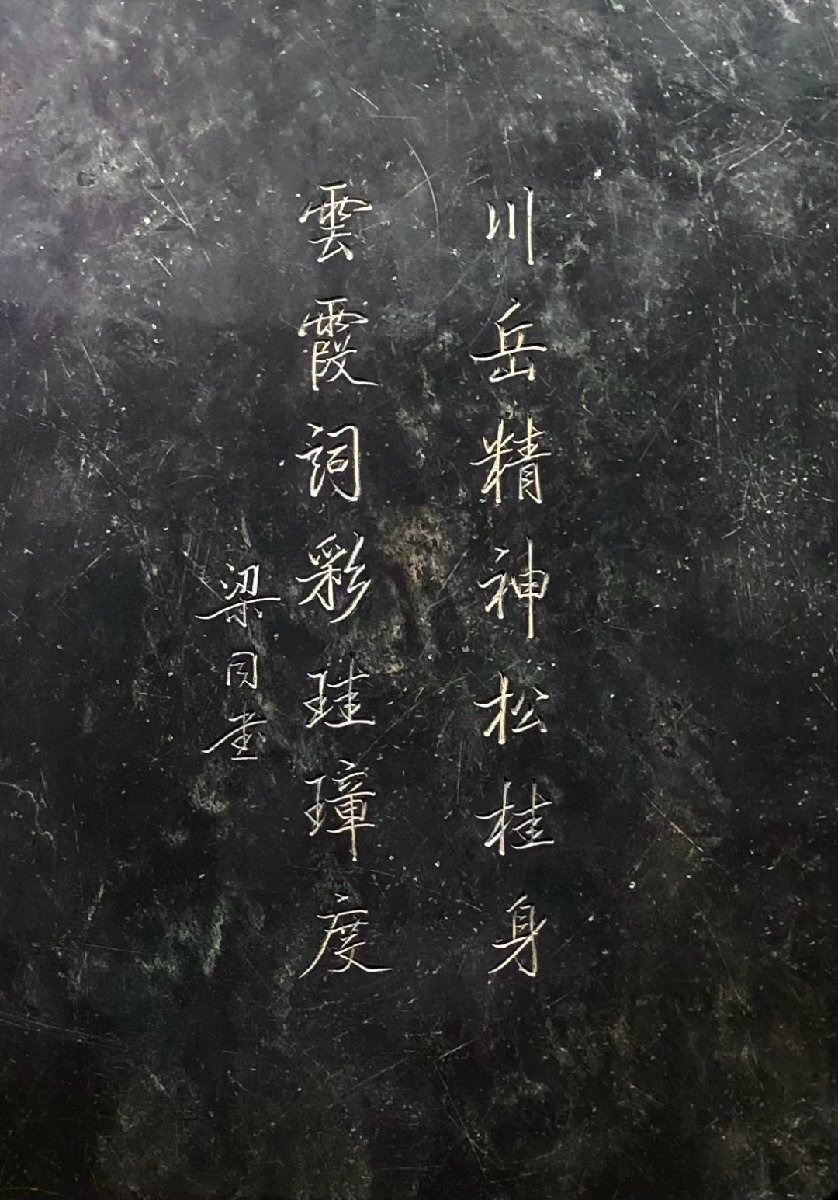 川岳精神松桂身
雲霞詞彩珪璋度
梁同書